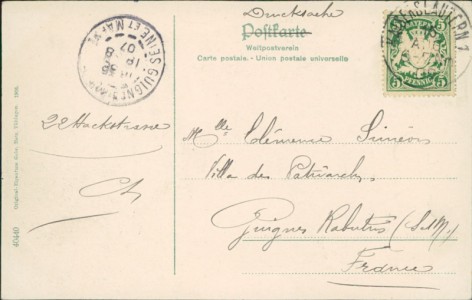 Drucksache
Postkarte
Weltpostverein
Carte postale. - Union postale universelle
KAISERSLAUTERN 1
5 5
PFENNIG
GUIGNES
SEINE ET MARNE
07
22 Hackstrasse
Ch
Mlle Clémence Siméon
Villa des Patriarches
Guignes Rabutin (S&M.)
France
40440